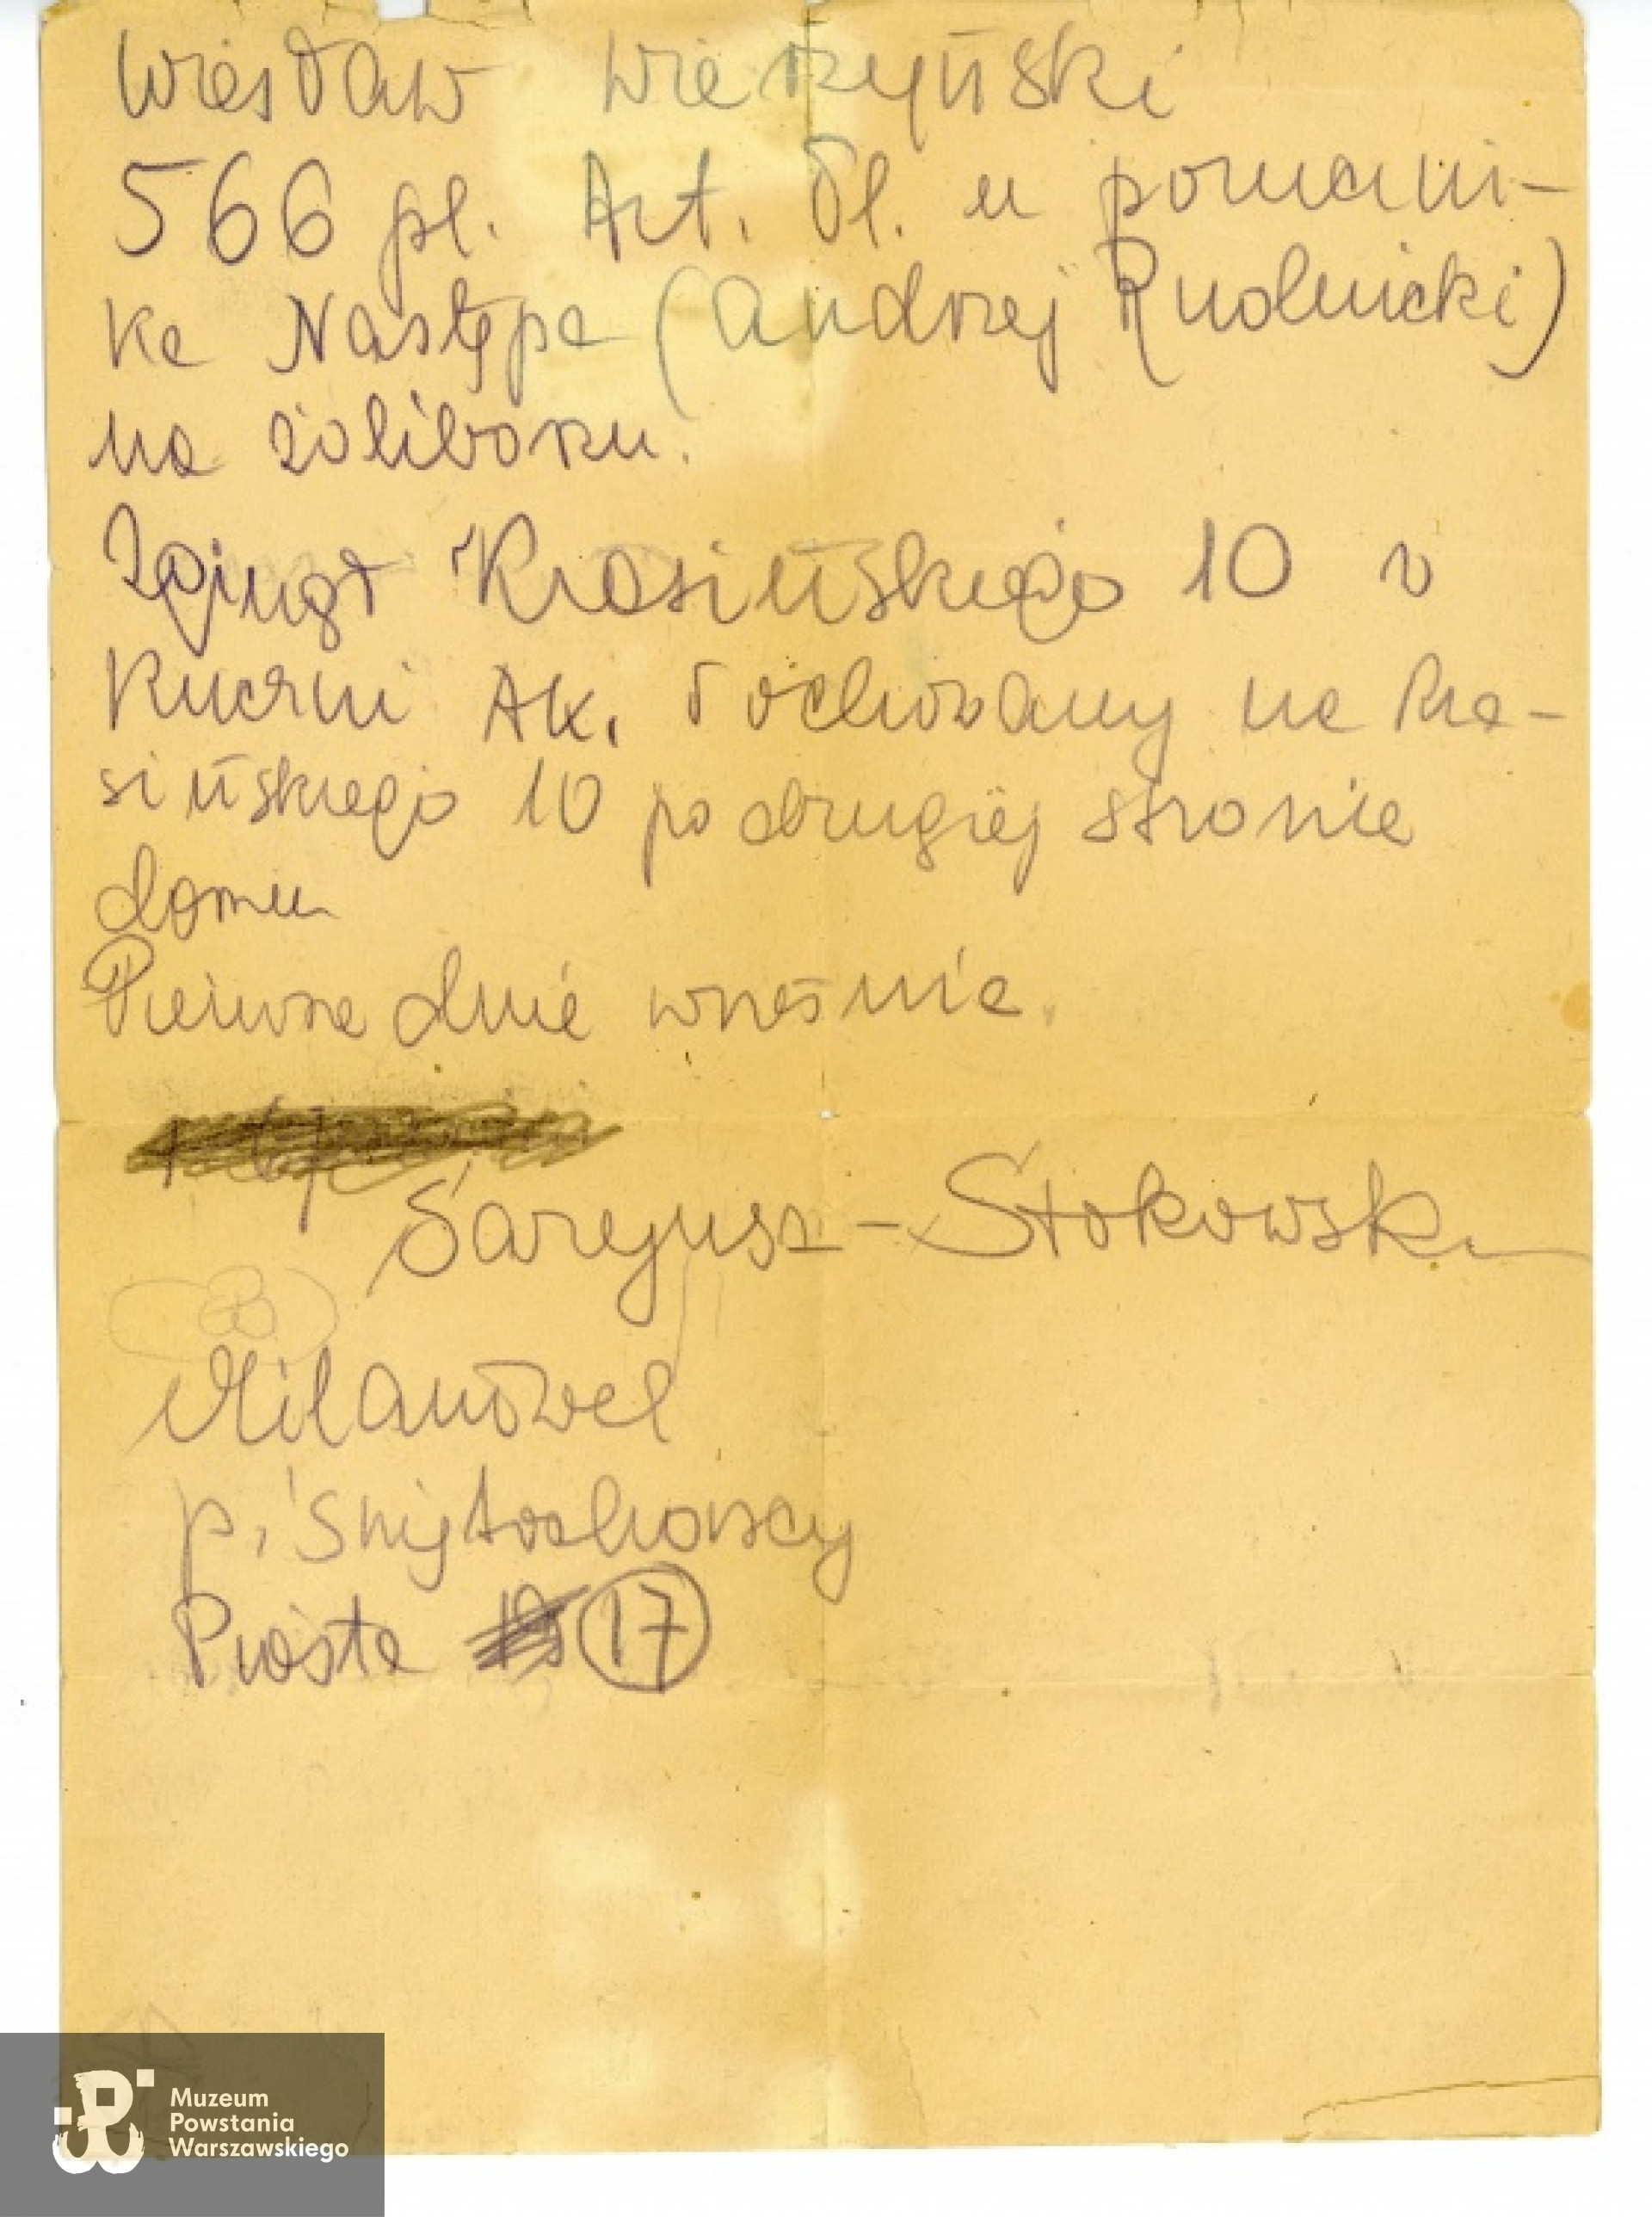 Wiesław Wierzyński
566 pl. Art. Pl. u porucni-
ka Następa (Andrzej Rudnicki)
na żoliborzu.
Zginął Krasińskiego 10 w
Kuchni AK. Pochowany na Kra-
sińskiego 10 po drugiej stronie
domu
Pierwsze dnie wrześnie.
Sarejusz-Stokowski
Milanówek
p. Świętochowscy
Piasta 17
Muzeum
Powstania
Warszawskiego